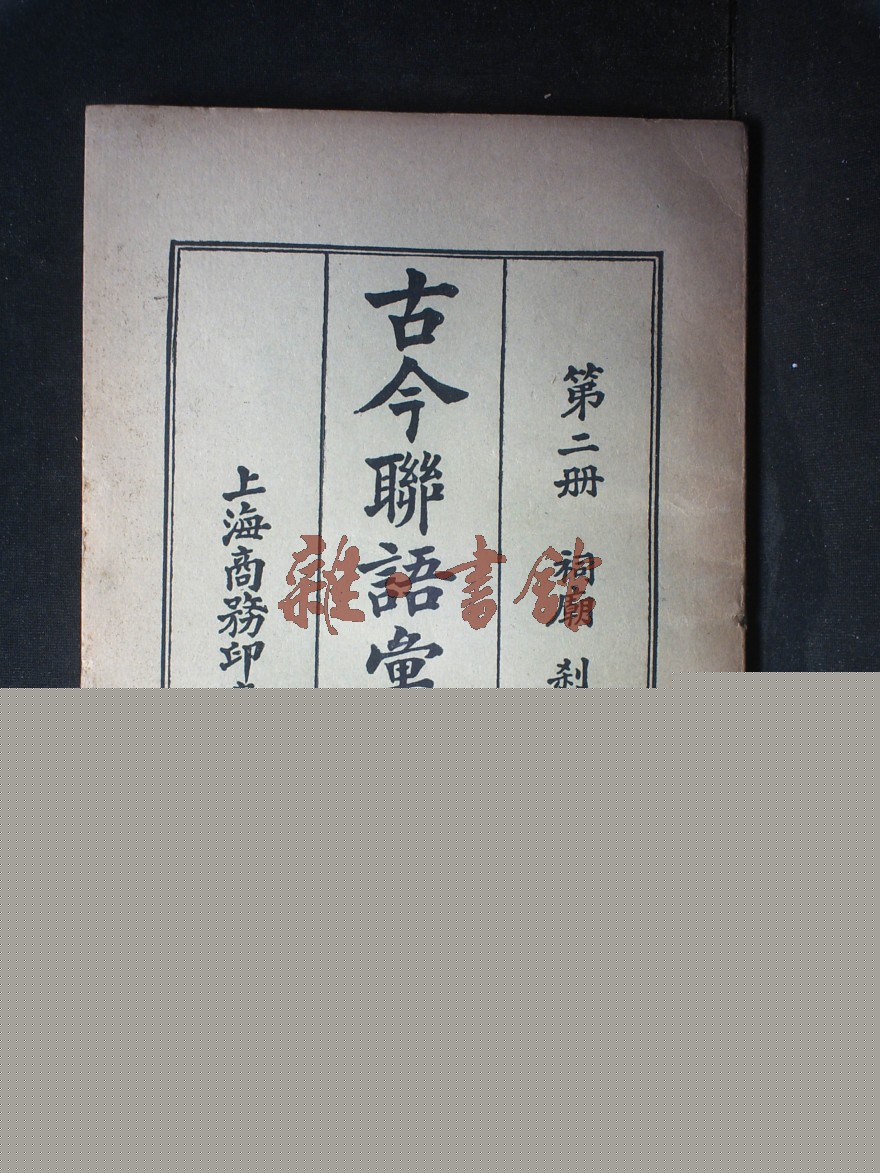 第二册 祠廟 刹
古今聯語彙
上海商務印
雜·書館